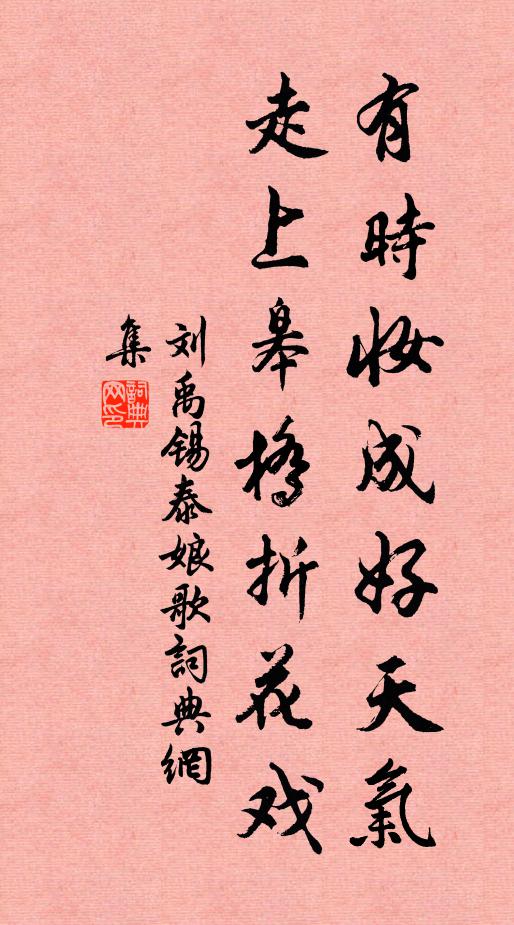 有時妝成好天氣
走上皋橋折花戏
刘禹锡泰娘歌詞典網
集
詞典網印